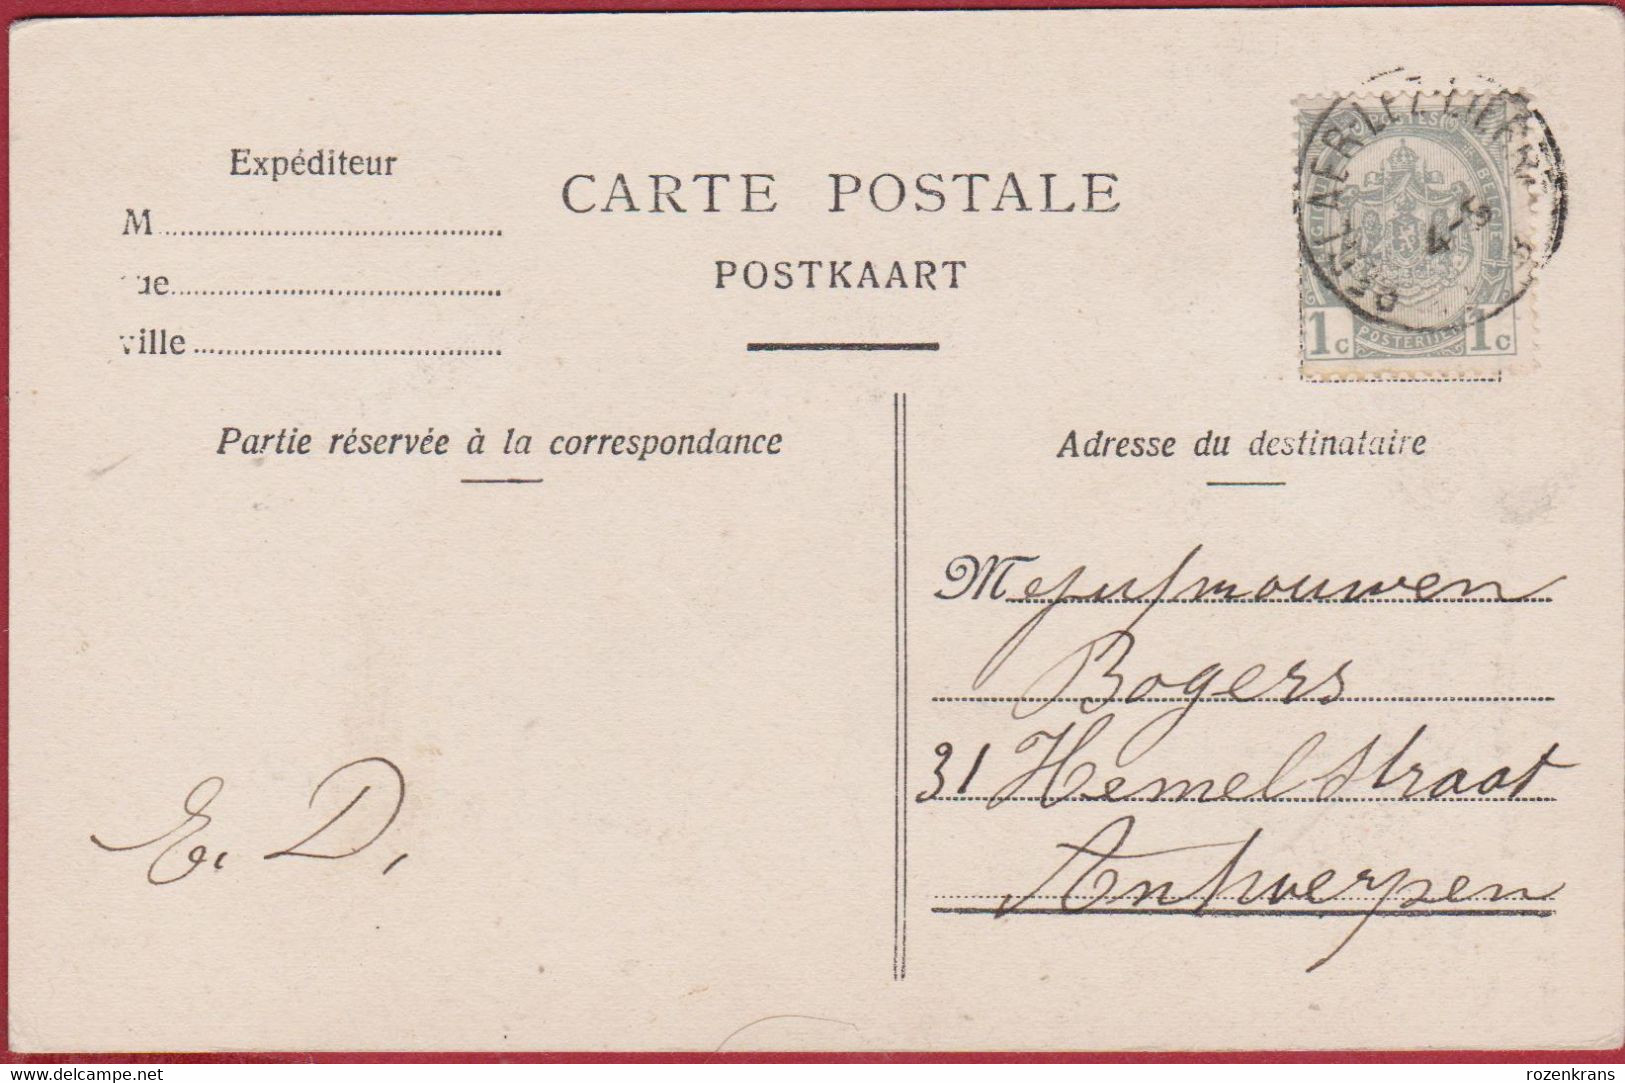 Expéditeur
M
ue
ville
CARTE POSTALE
POSTKAART
BERLAER-LEZ-LIERRE
4-5
POSTES
BELGIE
POSTERIJEN
1c 1c
Partie réservée à la correspondance
Adresse du destinataire
Mejufmouwen
Bogers
31 Hemelstraat
Antwerpen
E. D.
www.delcampe.net
rozenkrans